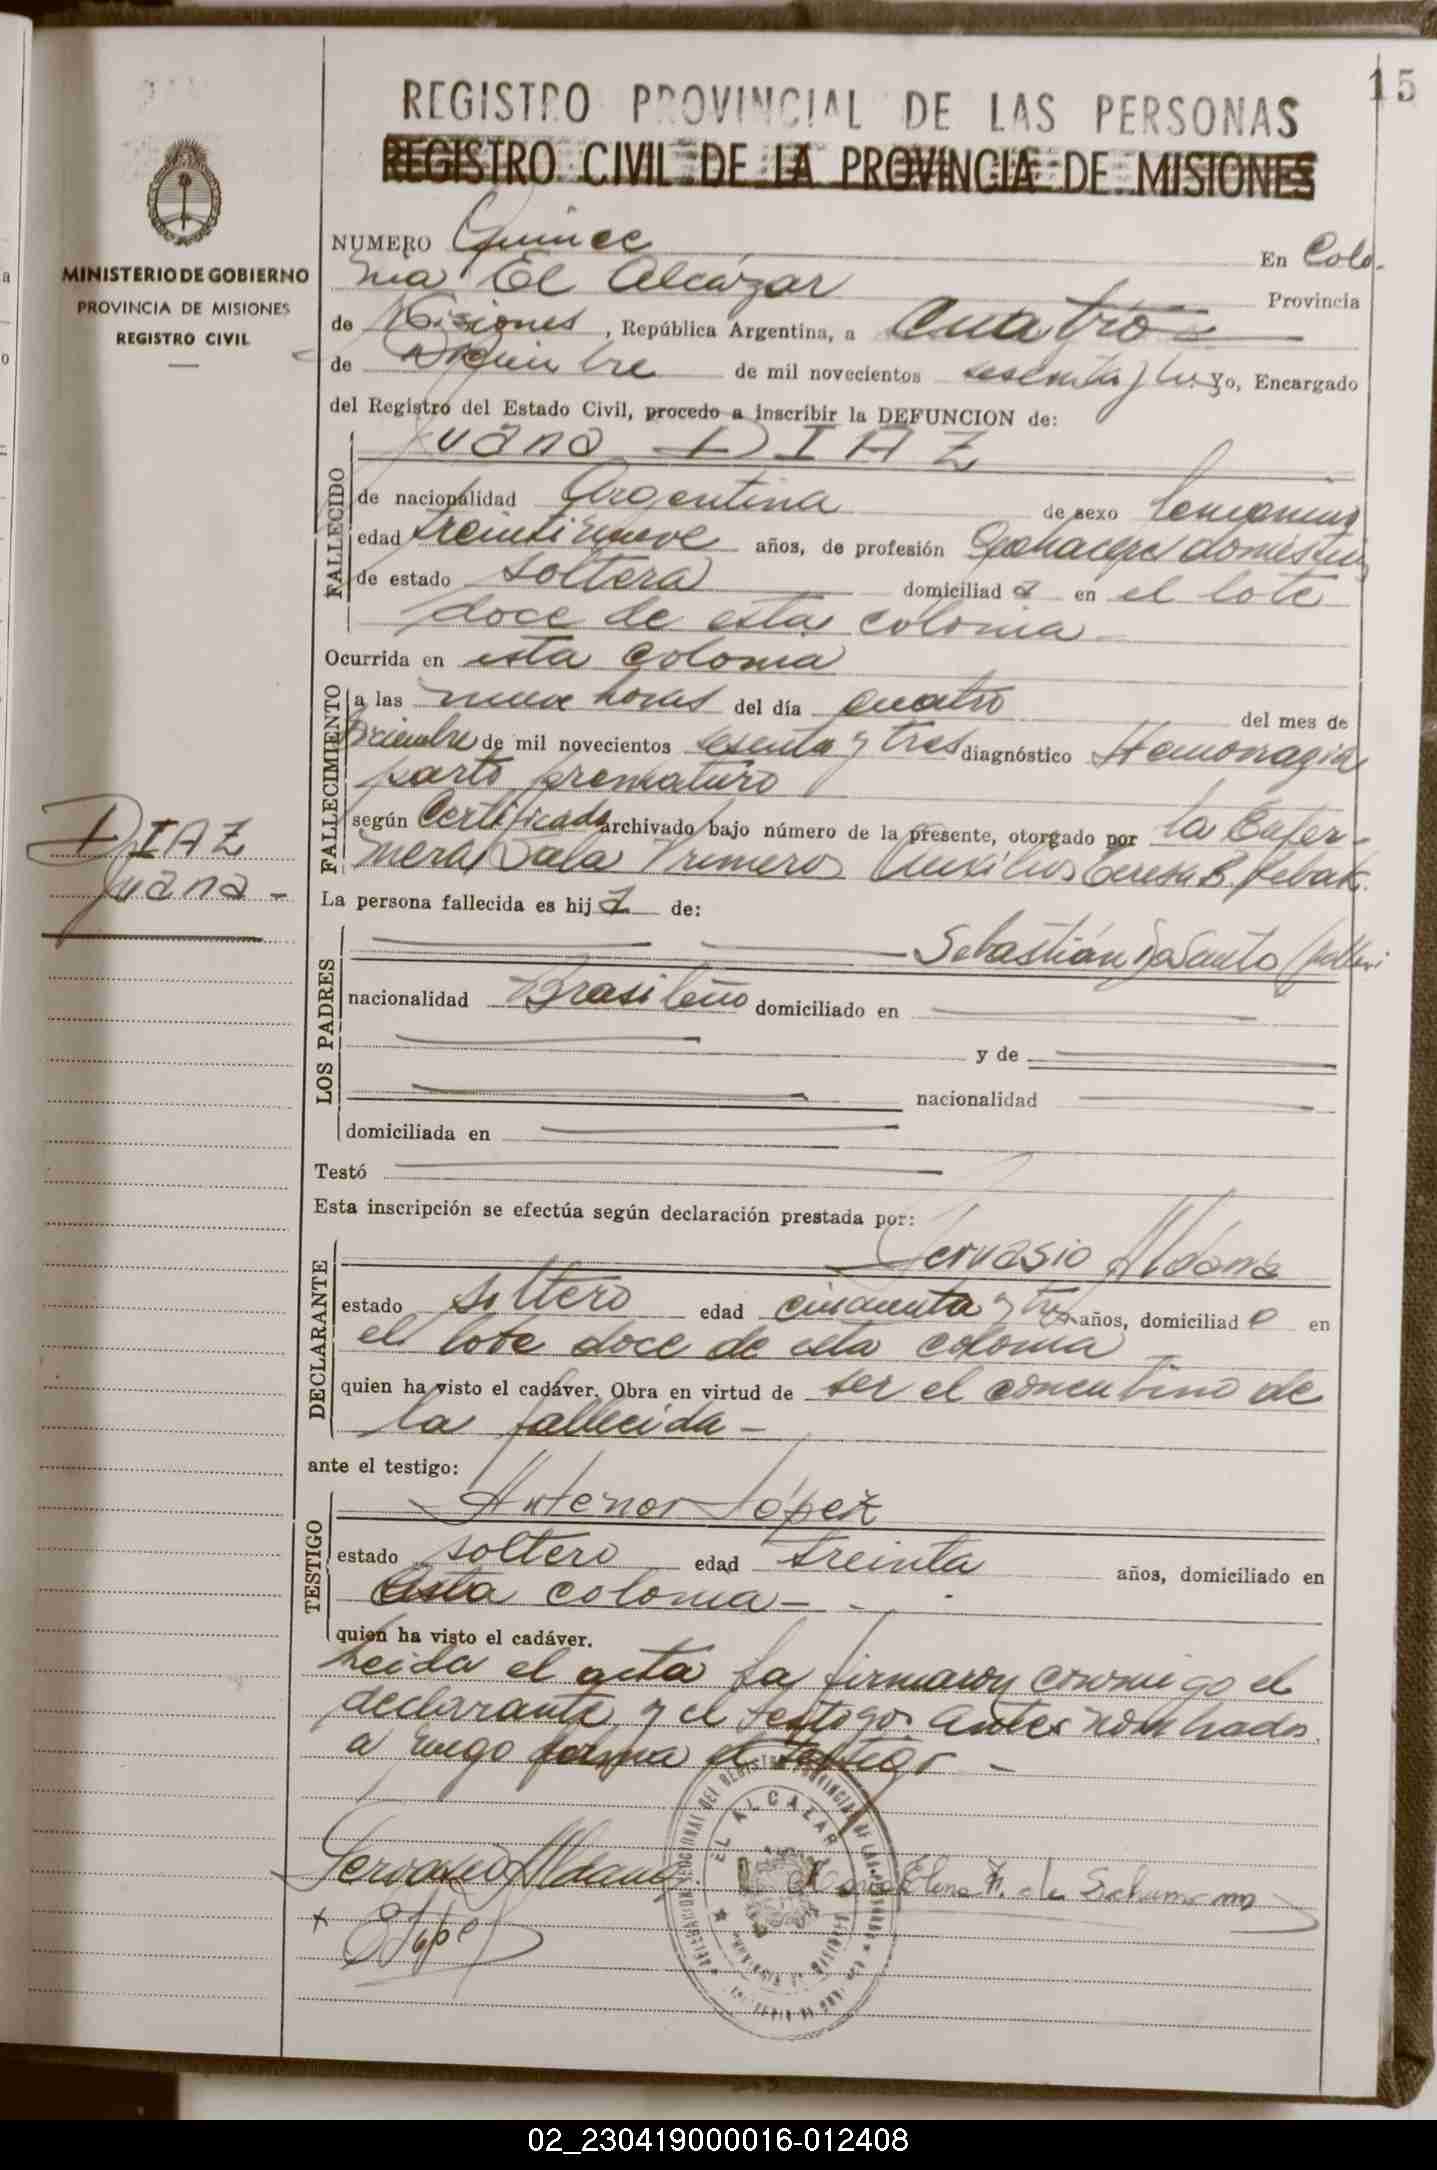 15
REGISTRO PROVINCIAL DE LAS PERSONAS
REGISTRO CIVIL DE LA PROVINCIA DE MISIONES
MINISTERIO DE GOBIERNO
PROVINCIA DE MISIONES
REGISTRO CIVIL
NUMERO Quince En Colo-
nia El Alcázar Provincia
de Misiones, República Argentina, a Cuatro
de de mil novecientos sesenta y tres Yo, Encargado
del Registro del Estado Civil, procedo a inscribir la DEFUNCION de:
FALLECIDO
Juana DIAZ
de nacionalidad Argentina de sexo femenino
edad treintinueve años, de profesión domésticos
de estado soltera domiciliad a en el lote
doce de esta colonia
Ocurrida en esta colonia
FALLECIMIENTO
a las nueve horas del día cuatro del mes de
Diciembre de mil novecientos sesenta y tres diagnóstico Hemorragia
parto prematuro
según Certificado archivado bajo número de la presente, otorgado por la Enfer-
mera Sala Primeros Auxilios Teresa B.
DIAZ
Juana -
La persona fallecida es hij a de:
LOS PADRES
Sebastián
nacionalidad Brasileño domiciliado en
y de
nacionalidad
domiciliada en
Testó
Esta inscripción se efectúa según declaración prestada por:
DECLARANTE
Gervasio Aldana
estado soltero edad cincuenta y tres años, domiciliad o en
el lote doce de esta colonia
quien ha visto el cadáver. Obra en virtud de ser el concubino de
la fallecida -
ante el testigo:
TESTIGO
Antenor López
estado soltero edad treinta años, domiciliado en
esta colonia -
quien ha visto el cadáver.
Leida el acta la firmaron conmigo el
declarante y el testigo antes nombrados
a ruego forma el testigo -
Gervasio Aldana
Elena F. de Schumann
EL ALCAZAR
02_230419000016-012408